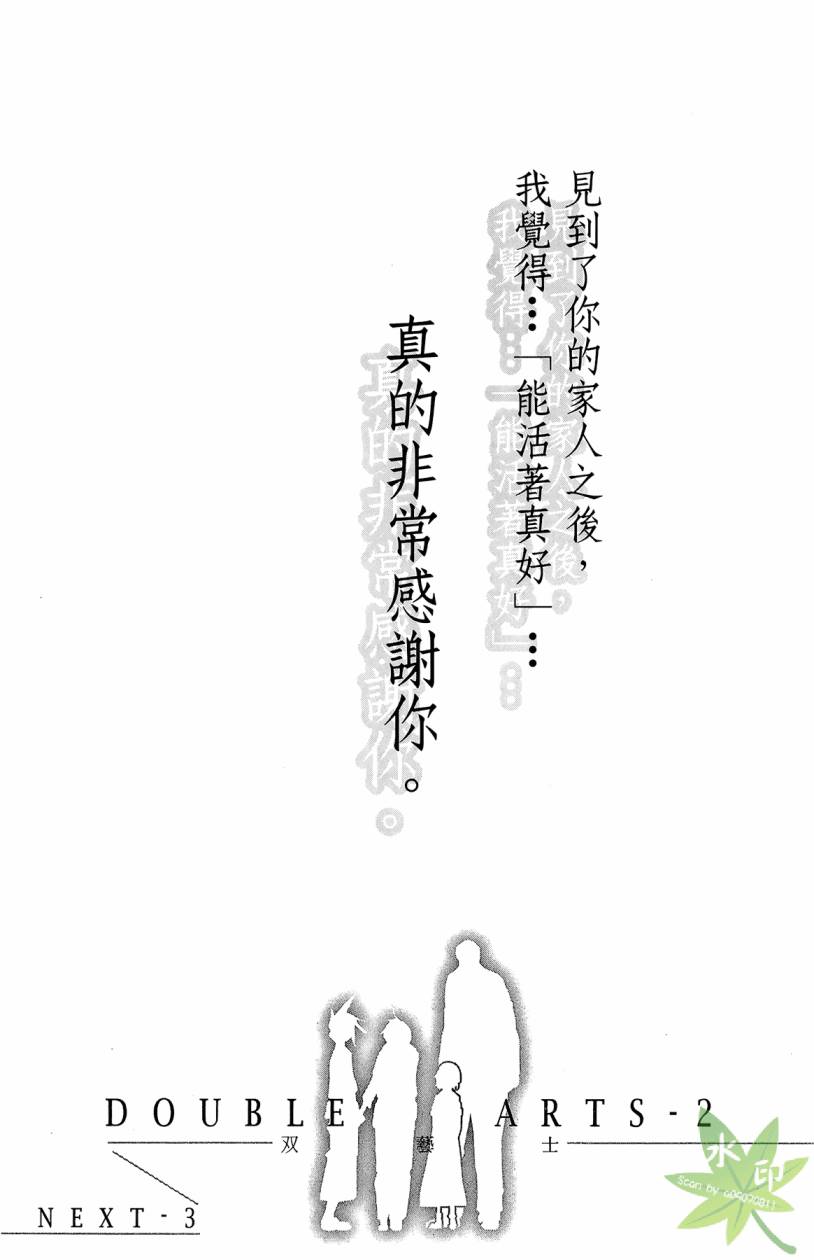 見到了你的家人之後，
我覺得…「能活著真好」…
真的非常感謝你。
DOUBLE ARTS-2
双藝士
NEXT-3
水印